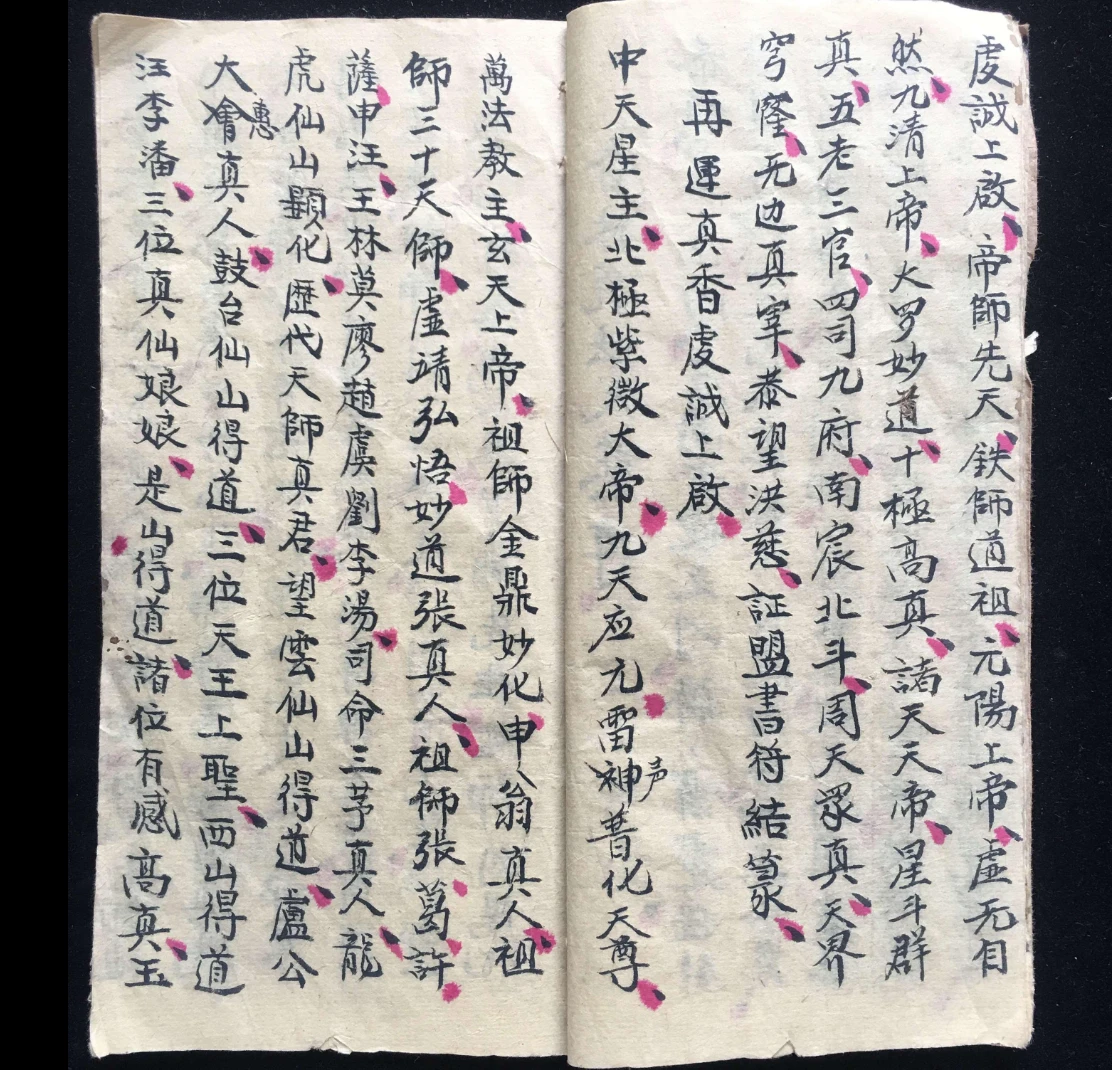 虔誠上啟、帝師先天、鉄師道祖、元陽上帝、虛无自
然、九清上帝、大罗妙道、十極高真、諸天天帝、星斗群
真、五老三官、四司九府、南宸北斗、周天眾真、天界
穹窿、无边真宰、恭望洪慈、証盟書符結篆、
再運真香虔誠上啟
中天星主、北極紫微大帝、九天应元雷神声普化天尊、
萬法教主、玄天上帝、祖師金鼎妙化申、翁真人、祖
師三十天師、虛靖弘悟妙道張真人、祖師張葛許
薩、申汪、王林莫廖趙虞劉李湯、司命三茅真人、龍
虎仙山顯化、歷代天師真君、望雲仙山得道、盧公
大惠真人、鼓台仙山得道、三位天王上聖、西山得道
汪李潘、三位真仙娘娘、是山得道、諸位有感高真、玉